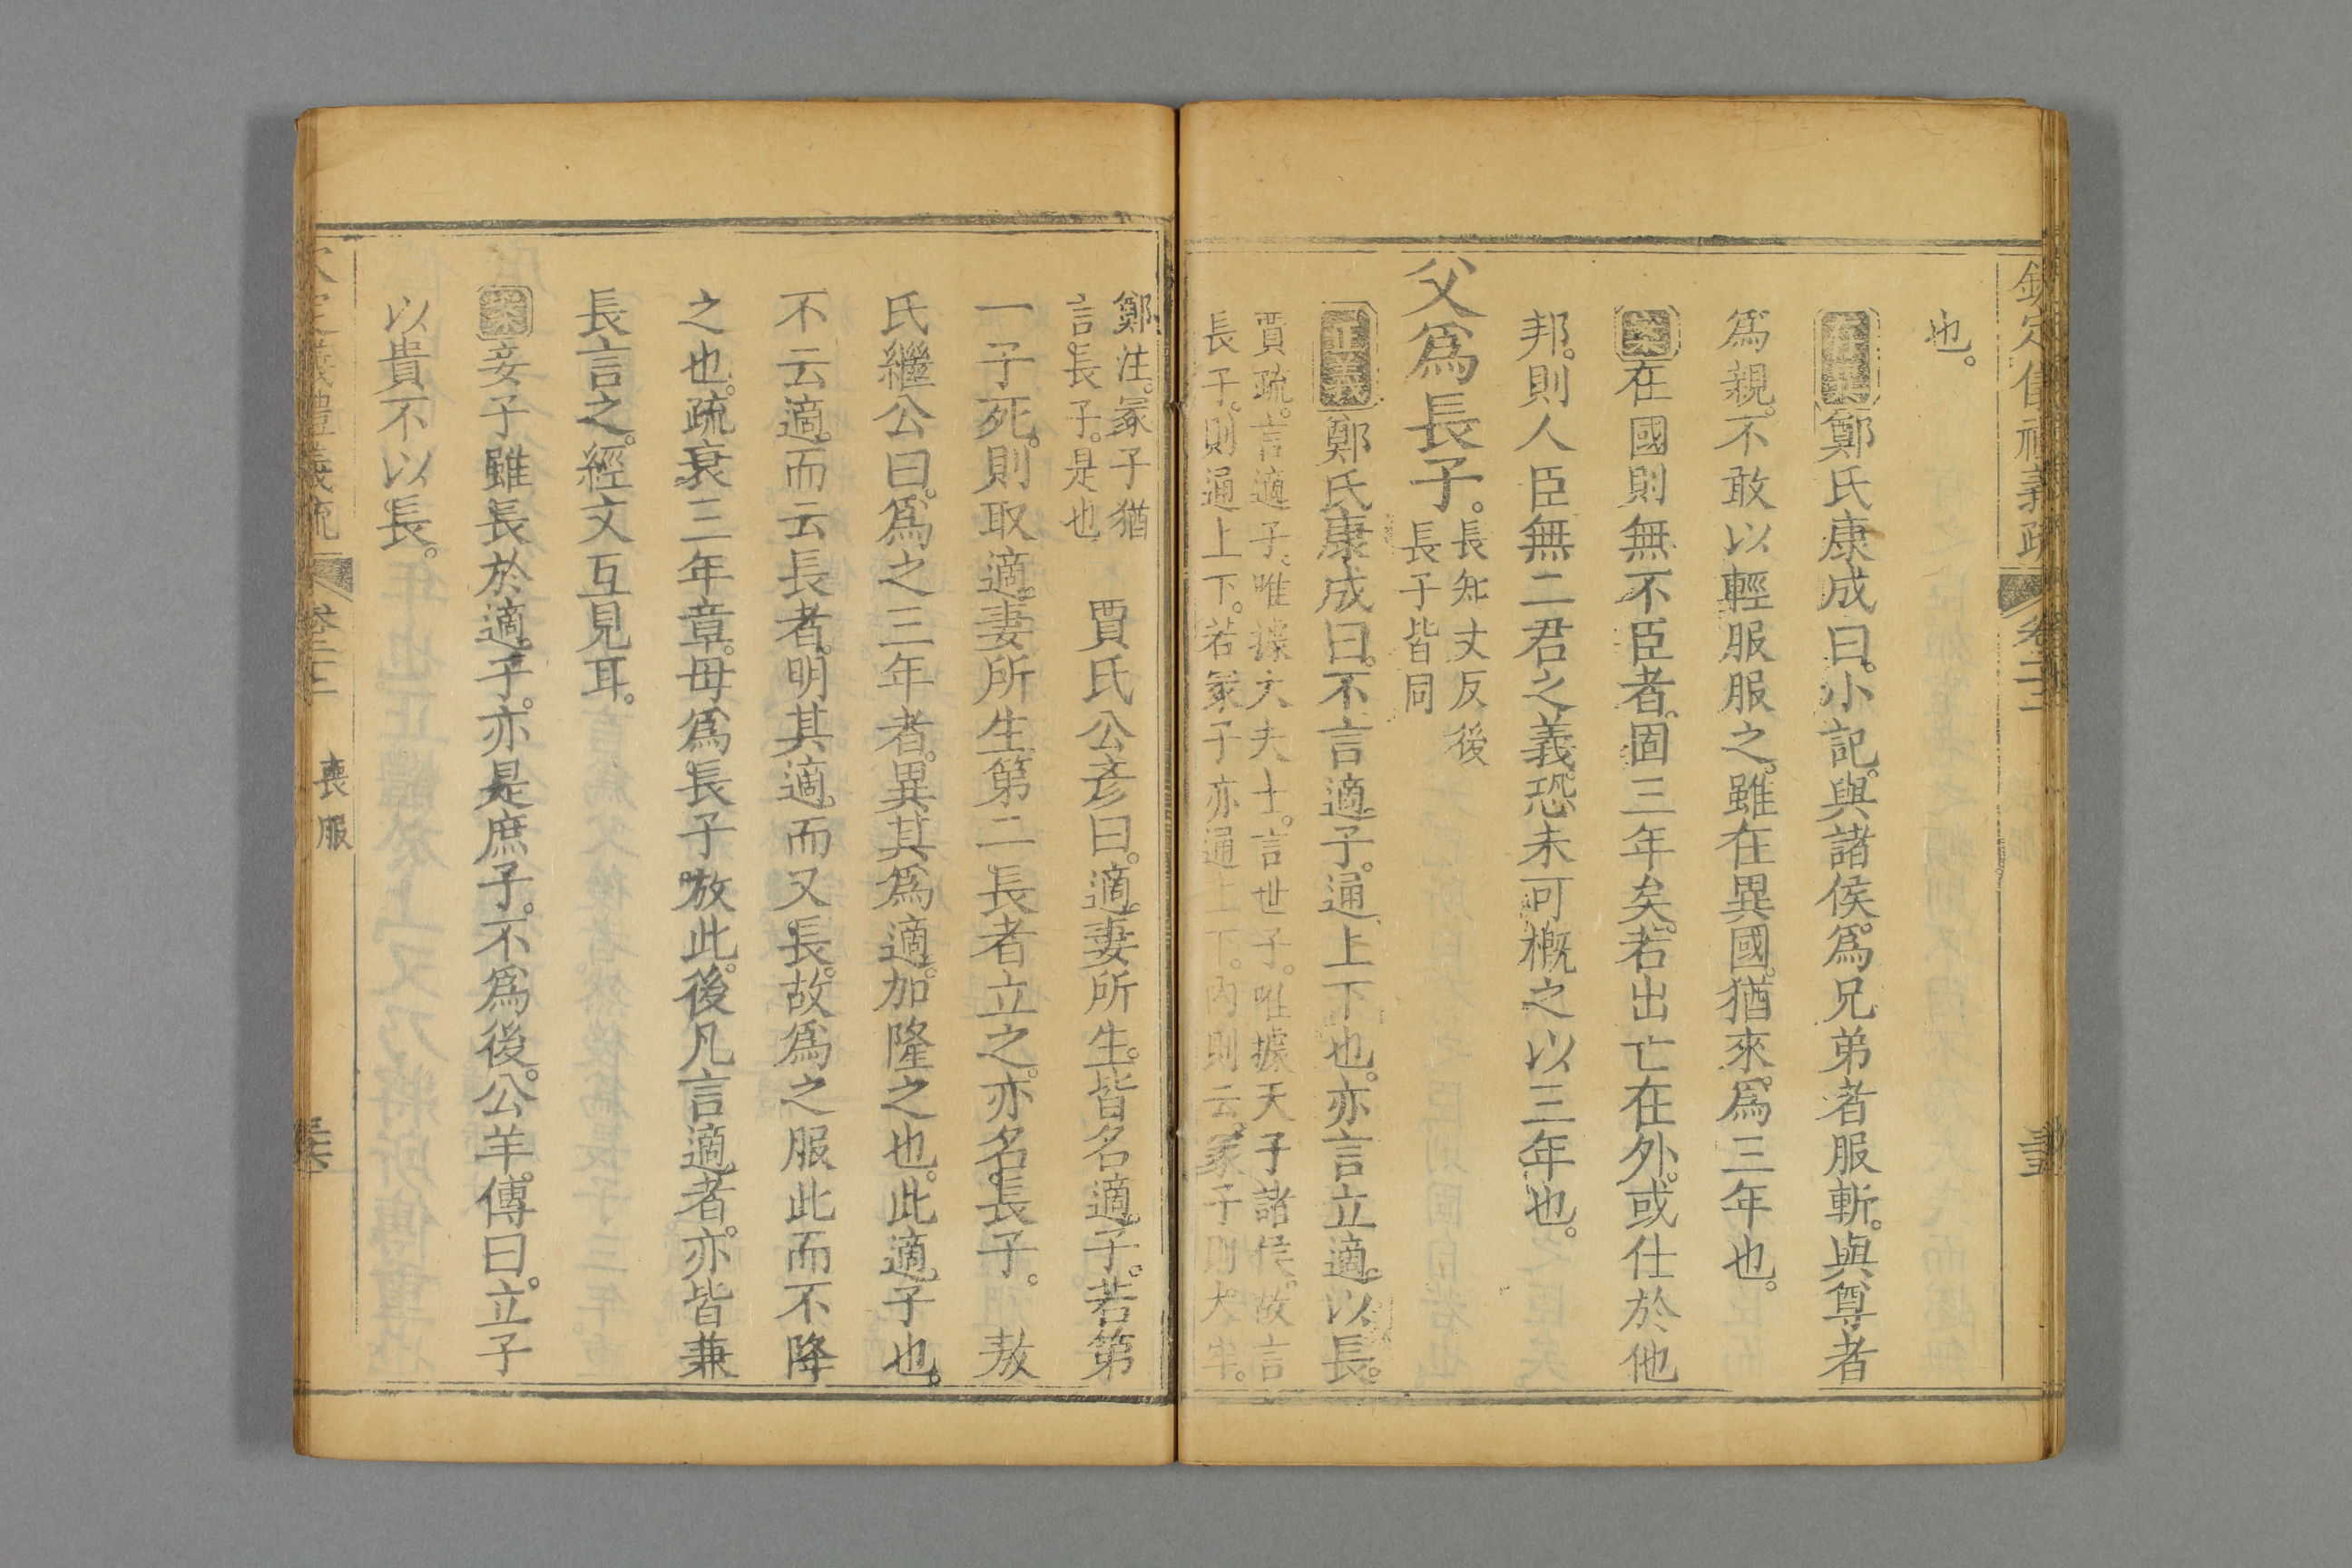 欽定儀禮義疏 卷二十三
也。
存異鄭氏康成曰。小記。與諸侯。爲兄弟者服斬。與尊者
爲親。不敢以輕服服之。雖在異國。猶來。爲三年也。
案在國則無不臣者。固三年矣。若出亡在外。或仕於他
邦。則人臣無二君之義。恐未可槪之以三年也。
父爲長子。
長知丈反後
長子皆同
正義鄭氏康成曰。不言適子。通上下也。亦言立適。以長。
賈疏。言適子。唯據大夫士。言世子。唯據天子諸侯。故言
長子。則通上下。若冢子亦通上下。內則云。冢子則大牢。
鄭注。冢子猶
言。長子。是也
賈氏公彥曰。適妻所生。皆名適子。若第
一子死。則取適。妻所生第二長者立之。亦名。長子。 敖
氏繼公曰。爲之三年者。異其爲適。加隆之也。此適子也。
不云適。而云長者。明其適。而又長。故爲之服此而不降
之也。疏衰三年章。母爲長子放此。後凡言適者。亦皆兼
長言之。經文互見耳。
案妾子雖長於適子。亦是庶子。不爲後。公羊。傳曰。立子
以貴不以長。
喪服